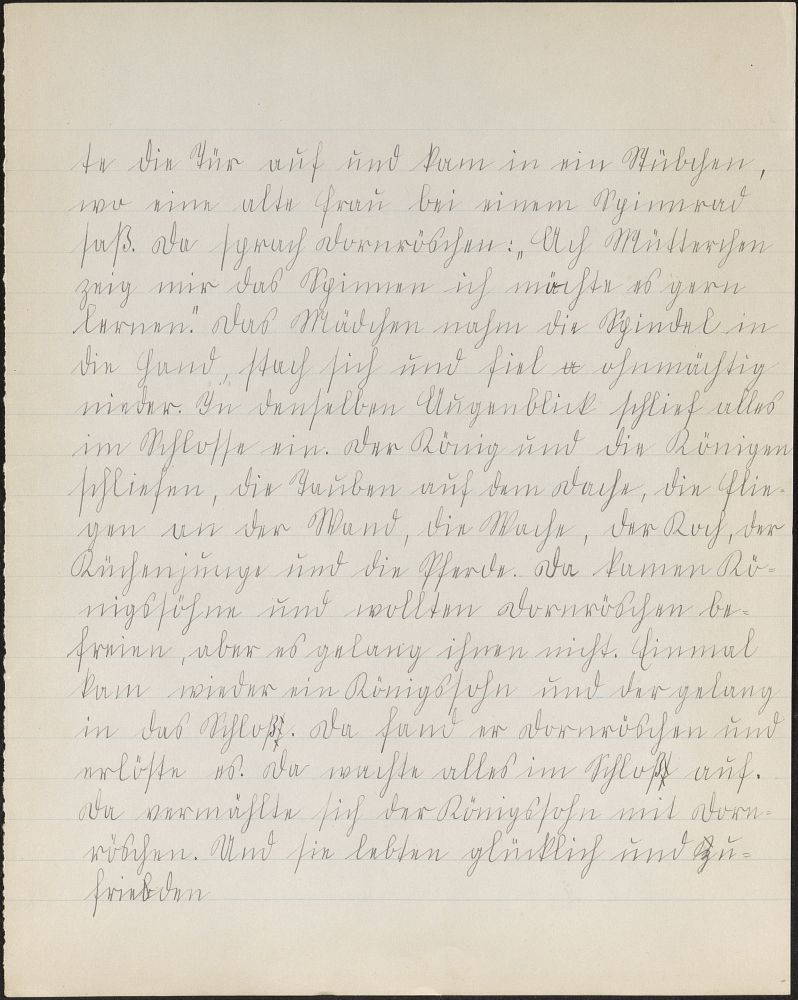 te die Tür auf und kam in ein Stübchen,
wo eine alte Frau bei einem Spinnrad
saß. Da sprach Dornröschen: „Ach Mütterchen
zeig mir das Spinnen ich möchte es gern
lernen." Das Mädchen nahm die Spindel in
die Hand, stach sich und fiel ohnmächtig
nieder. In denselben Augenblick schlief alles
im Schlosse ein. Der König und die Königen
schliefen, die Tauben auf dem Dache, die Flie-
gen an der Wand, die Wache, der Koch, der
Küchenjunge und die Pferde. Da kamen Kö=
nigssöhne und wollten Dornröschen be=
freien, aber es gelang ihnen nicht. Einmal
kam wieder ein Königssohn und der gelang
in das Schloß. Da fand er Dornröschen und
erlöste es. Da wachte alles im Schloß auf.
Da vermählte sich der Königssohn mit Dorn=
röschen. Und sie lebten glücklich und zu=
frieden